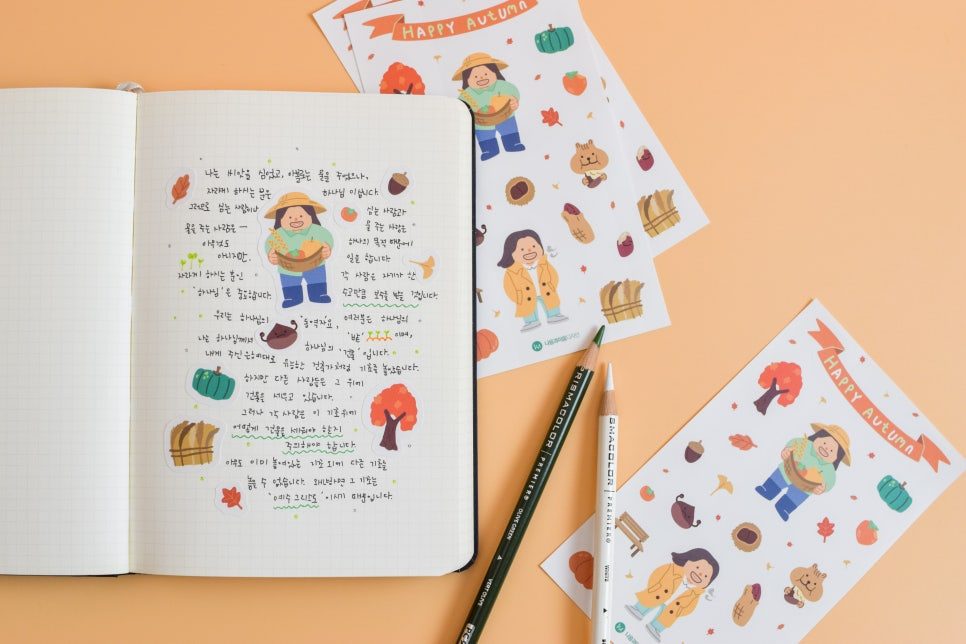 나는 씨앗을 심었고, 아볼로는 물을 주었으나,
자라게 하시는 분은 하나님 이십니다.
그러므로 심는 사람이나 심는 사람과
물을 주는 사람은 물 주는 사람은
아무것도 하나의 목적 때문에
아니지만, 일을 합니다.
자라게 하시는 분인 각 사람은 자기가 한
'하나님'은 중요합니다. 수고만큼 보수를 받을 것입니다.
우리는 하나님의 '동역자'요, 여러분은 하나님의
'밭' 이며,
나는 하나님께서 하나님의 '건물' 입니다.
내게 주신 은혜대로 유능한 건축가처럼 기초를 놓았습니다.
하지만 다른 사람들은 그 위에
건물을 세우고 있습니다.
그러나 각 사람은 이 기초 위에
어떻게 건물을 세워야 할는지
주의해야 합니다.
아무도 이미 놓여있는 기초 외에 다른 기초를
놓을 수 없습니다. 왜냐하면 그 기초는
'예수 그리스도' 이시기 때문입니다.
HAPPY AUTUMN
HAPPY AUTUMN
PRISMACOLOR | PREMIER® OLIVE GREEN ▲ VERT OLIVE
SMACOLOR | PREMIER® WHITE